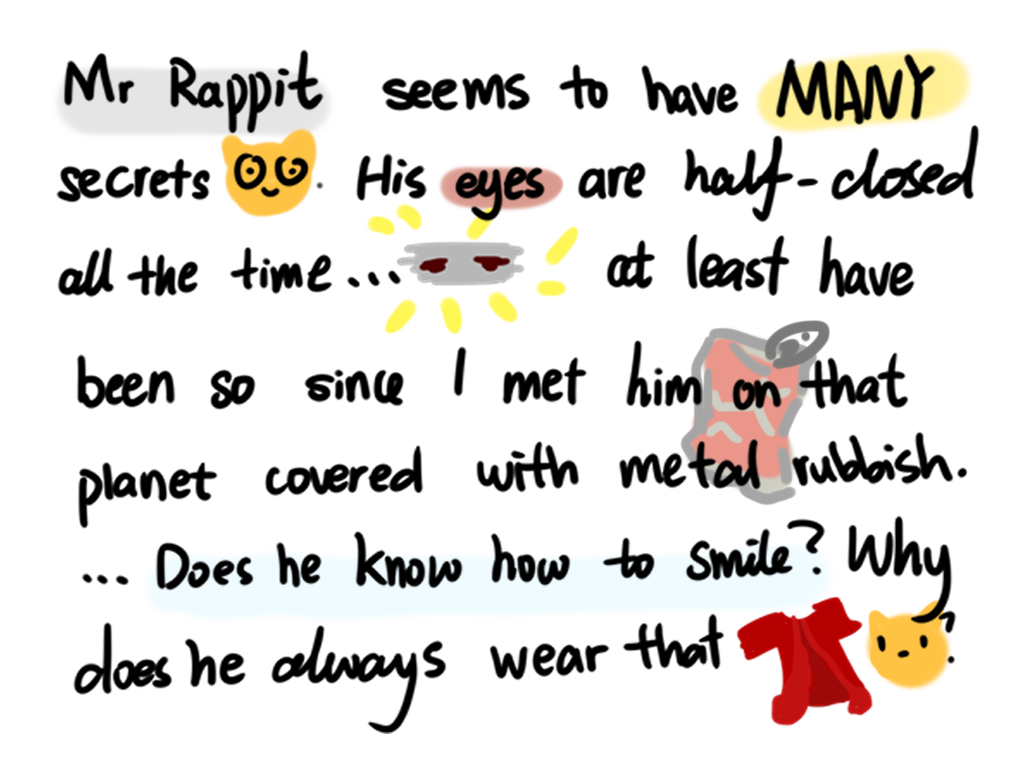 Mr Rappit seems to have MANY
secrets. His eyes are half-closed
all the time... at least have
been so since I met him on that
planet covered with metal rubbish.
... Does he know how to smile? Why
does he always wear that ?